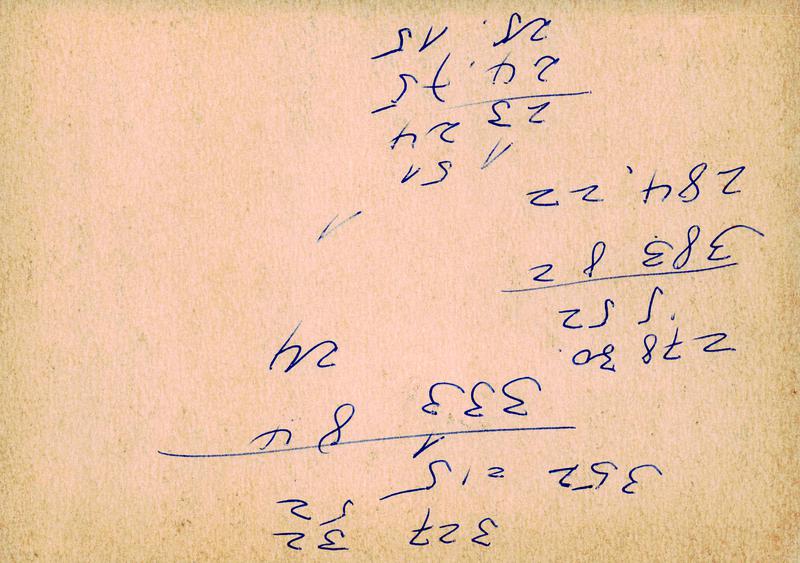 327 32
5 52
352 = 15
1
333 84
24
278 30
5 52
383 82
284,22
1 51
23 24
24.75
25.15